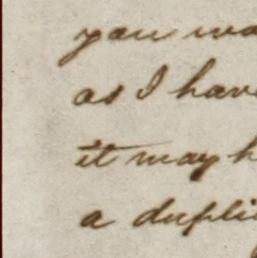 you wa
as I have
it may h
a dupli